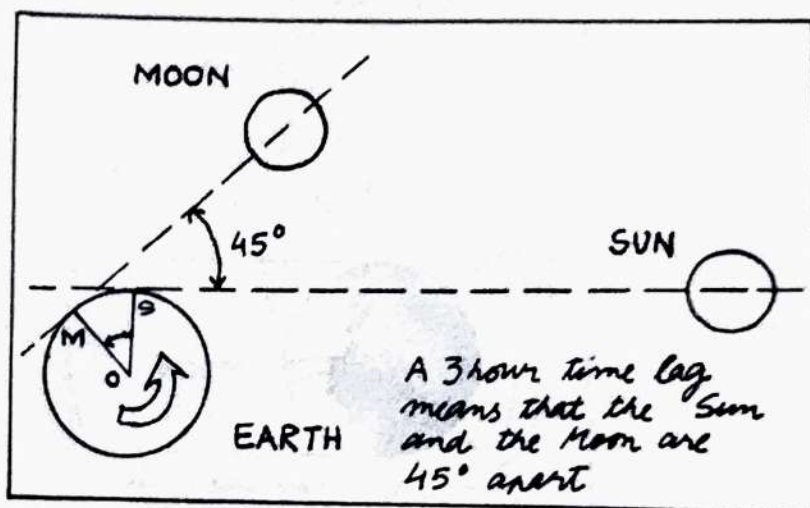 MOON
45°
SUN
M
S
O
EARTH
A 3 hour time lag
means that the Sun
and the Moon are
45° apart